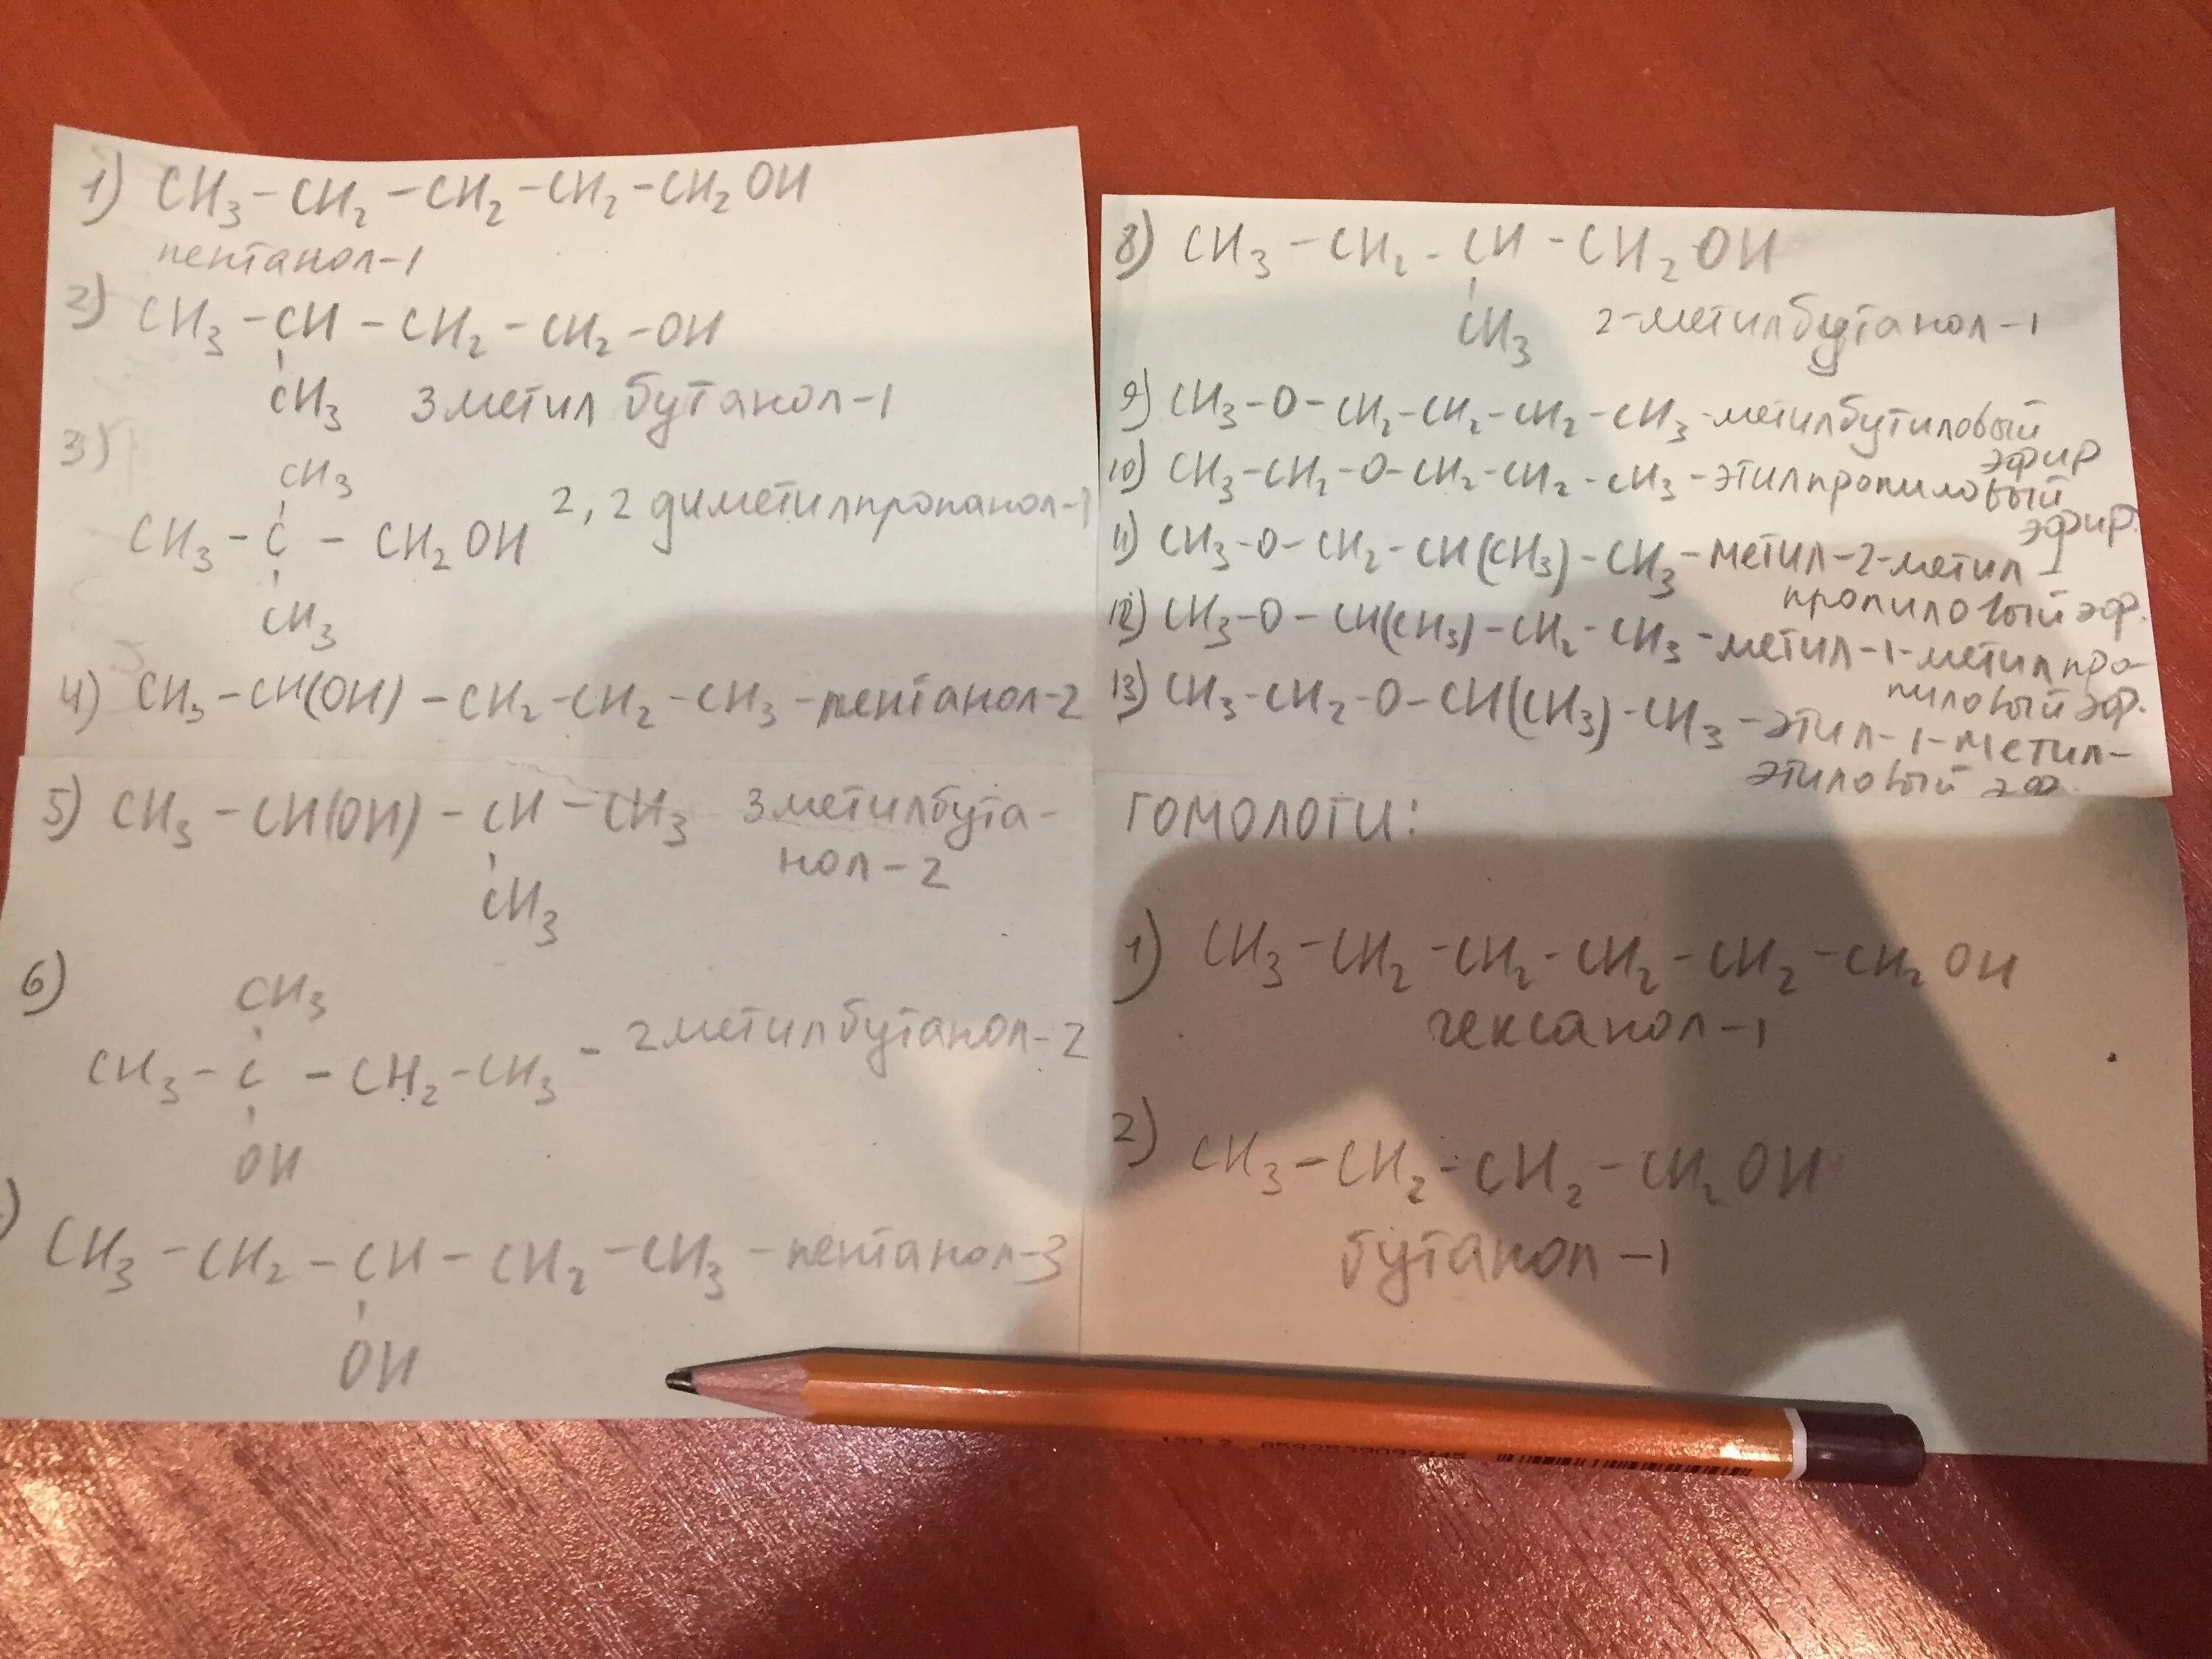 1) CH3-CH2-CH2-CH2-CH2OH
пентанол-1
2) CH3-CH-CH2-CH2-OH
CH3 3метил бутанол-1
3)
CH3
CH3-C-CH2OH 2,2 диметилпропанол-1
CH3
4) CH3-CH(OH)-CH2-CH2-CH3-пентанол-2
5) CH3-CH(OH)-CH-CH3 3метилбута-
нол-2
CH3
6)
CH3
CH3-C-CH2-CH3-2метилбутанол-2
OH
) CH3-CH2-CH-CH2-CH3-пентанол-3
OH
8) CH3-CH2-CH-CH2OH
CH3 2-метилбутанол-1
9) CH3-O-CH2-CH2-CH2-CH3-метилбутиловый
эфир
10) CH3-CH2-O-CH2-CH2-CH3-этилпропиловый
эфир.
11) CH3-O-CH2-CH(CH3)-CH3-метил-2-метил-
пропиловый эф.
12) CH3-O-CH(CH3)-CH2-CH3-метил-1-метилпро-
пиловый эф.
13) CH3-CH2-O-CH(CH3)-CH3-этил-1-метил-
этиловый эф.
ГОМОЛОГИ:
1) CH3-CH2-CH2-CH2-CH2-CH2OH
гексанол-1
2) CH3-CH2-CH2-CH2OH
бутанол-1